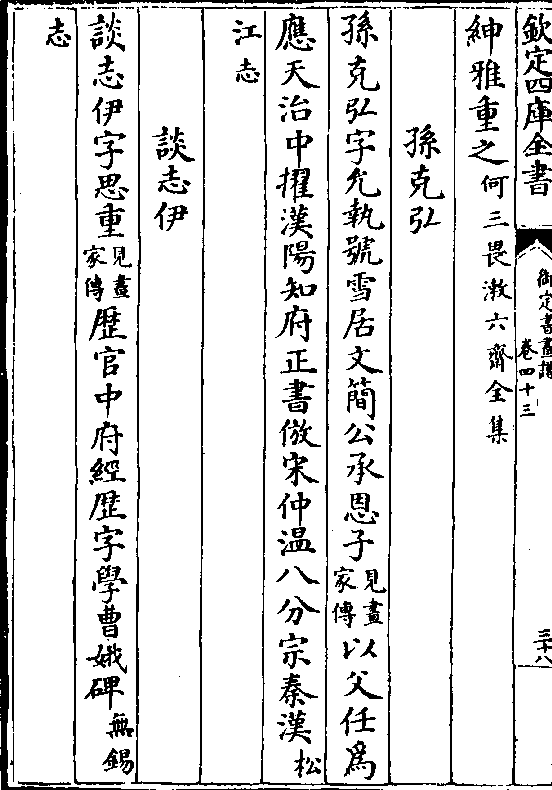 欽定四庫全書
御定書畫譜
卷四十三
三十八
紳雅重之何三畏漱六齋全集
孫克弘
孫克弘字允執號雪居文簡公承恩子見畫家傳以父任爲
應天治中擢漢陽知府正書倣宋仲温八分宗秦漢松
江志
談志伊
談志伊字思重見畫家傳歴官中府經歴字學曹娥碑無錫
志